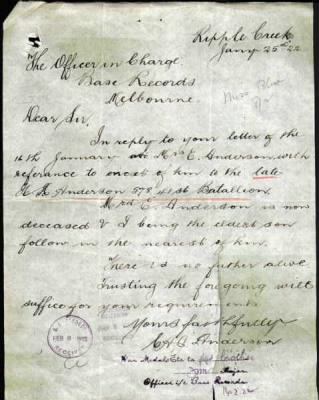 Ripple Creek
Jany 25th 22
The Officer in Charge
Base Records
Melbourne.
Dear Sir,
In reply to your letter of the
16th January Mrs E. Anderson, with
referance to next of kin to the late
Anderson 578 41st Batallion.
Mrs E. Anderson is now
deceased & I being the eldest son
follow in the nearest of kin.
There is no father alive
Trusting the foregoing will
suffice for your requirments
Yours faithfully
Anderson
War Medals Etc to
Major
Officer i/c Base Records
FEB 8